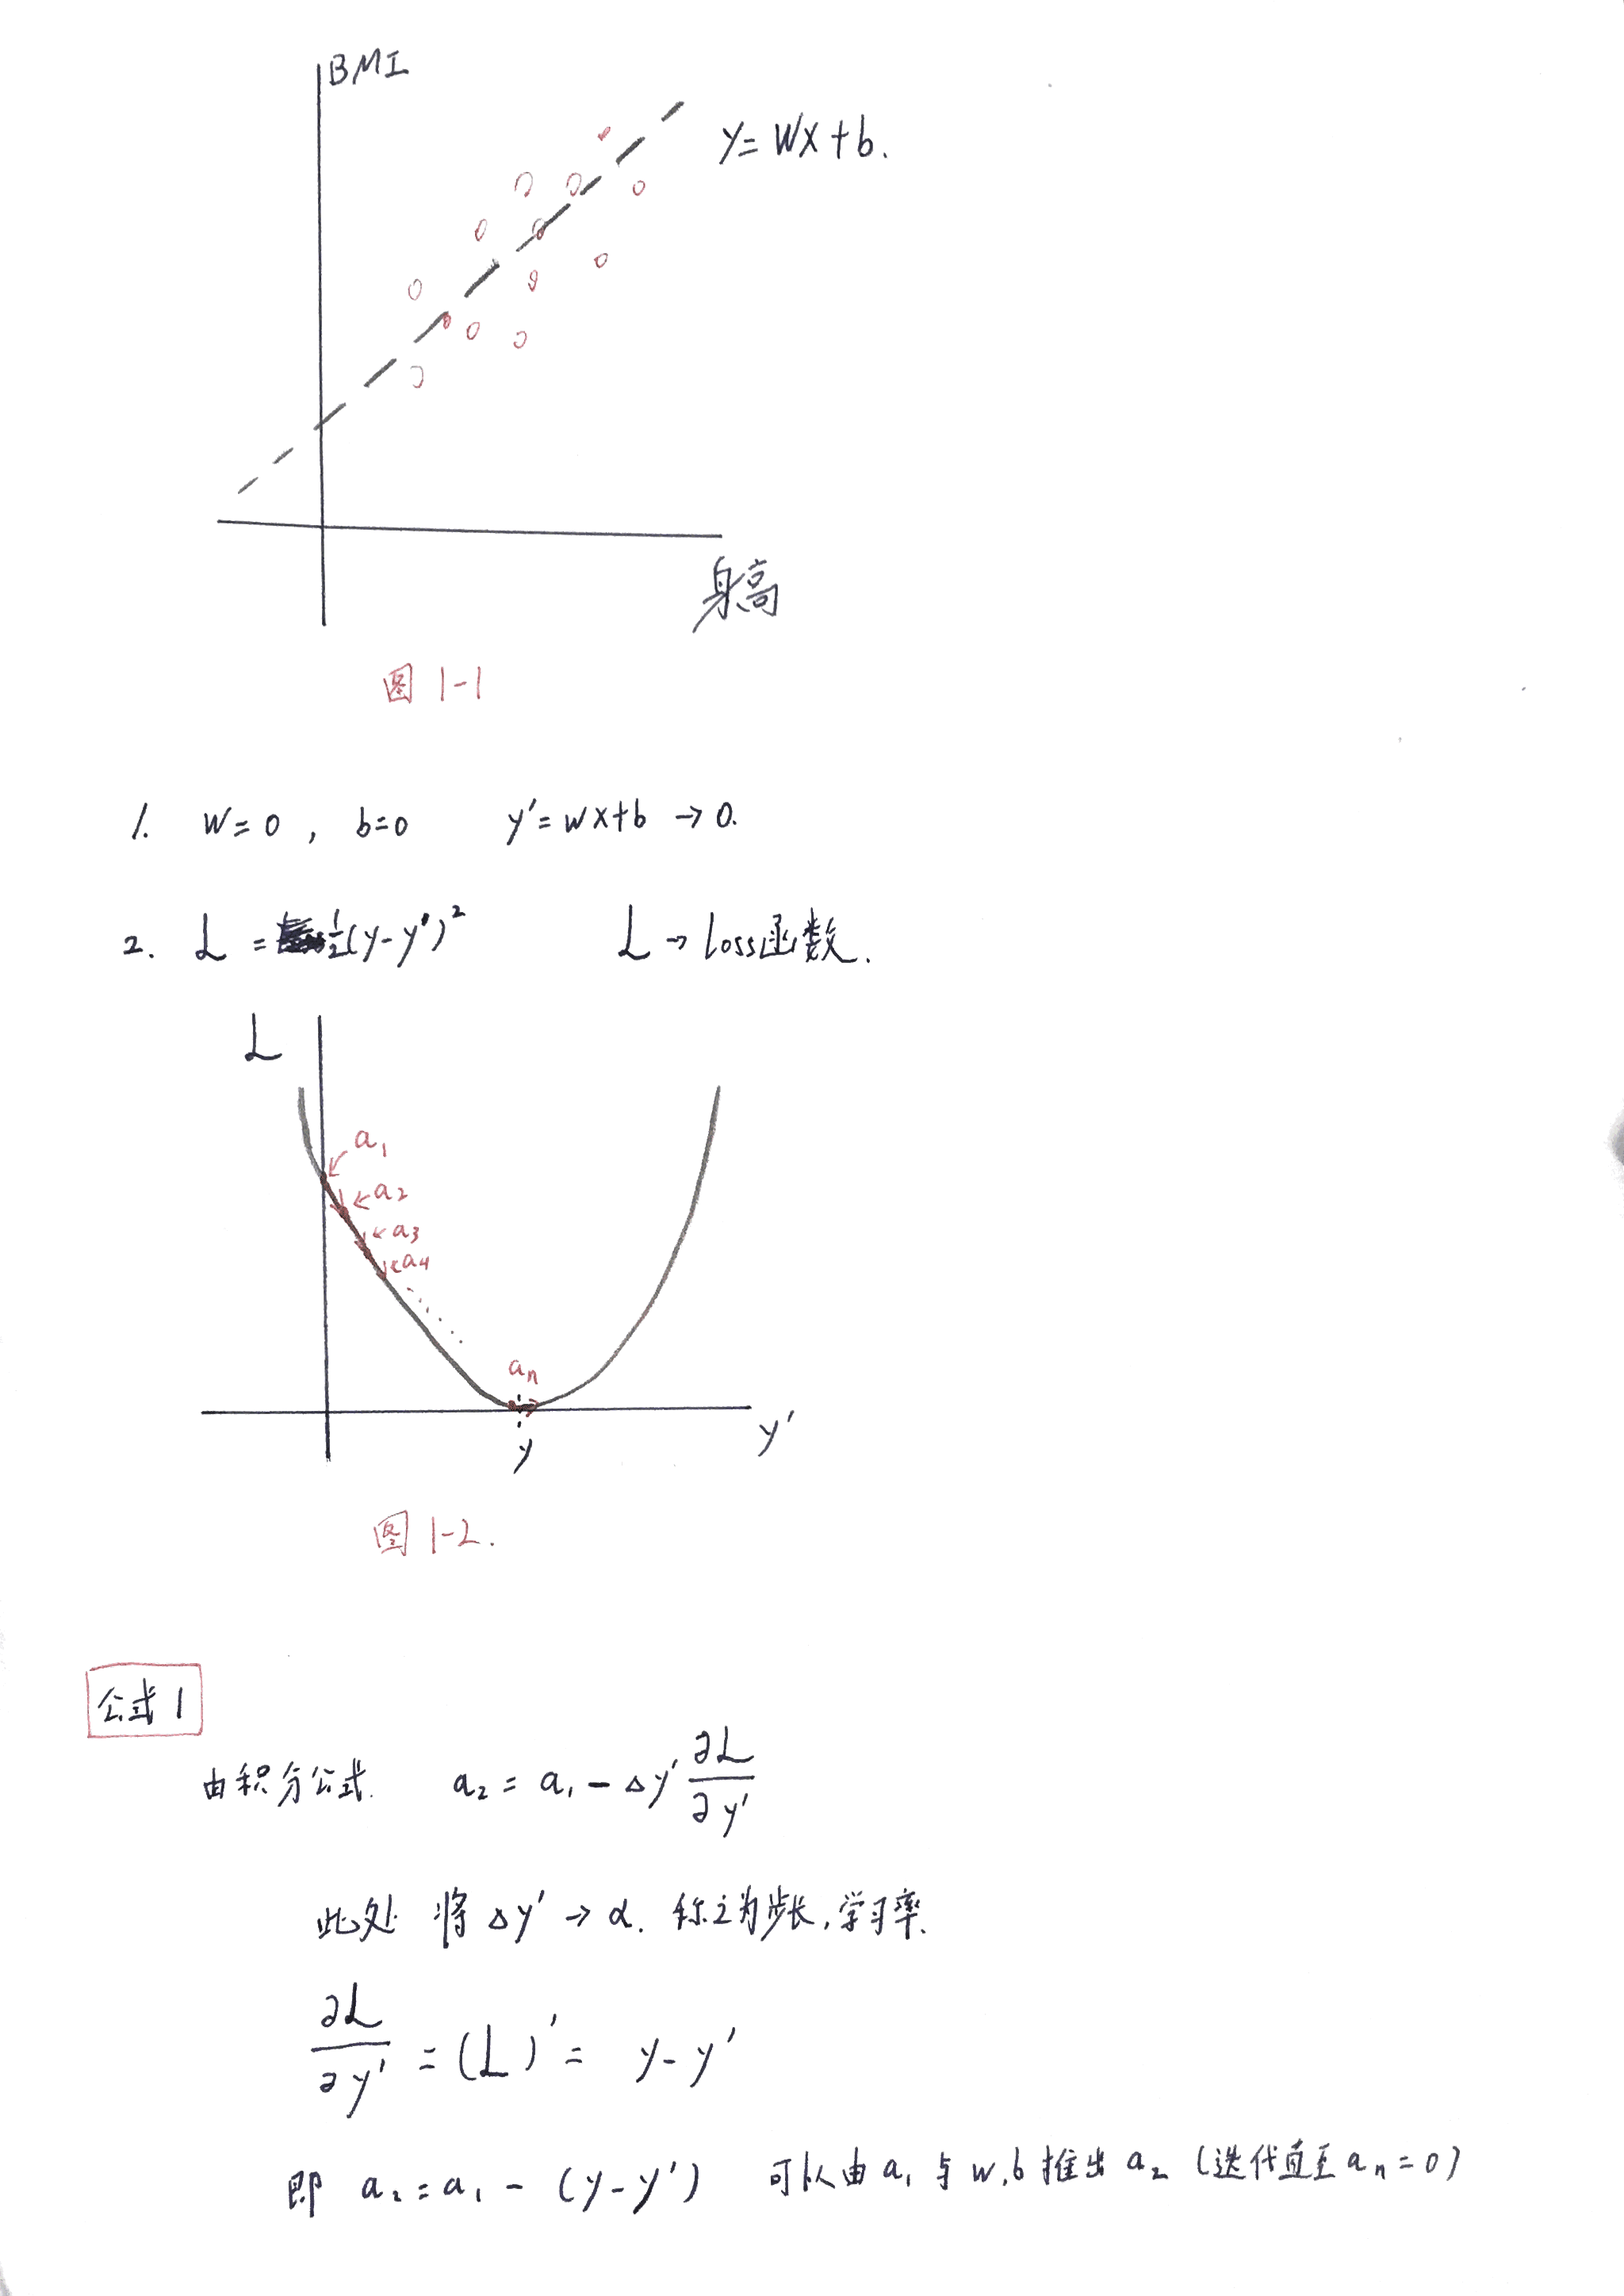 BMI
y=wx+b.
身高
图 1-1
1. w=0 , b=0 y'=wx+b →0.
2. L = 1/2(y-y')² L→loss函数.
L
a₁
a₂
a₃
a₄
aₙ
y
y'
图 1-2.
公式 1
由积分公式. a₂ = a₁ - Δy' ∂L/∂y'
此处 将 Δy' → α. 称之为步长,学习率.
∂L/∂y' = (L)' = y-y'
即 a₂=a₁ - (y-y') 可以由 a₁ 与 w,b 推出 a₂ (迭代直至 aₙ=0)